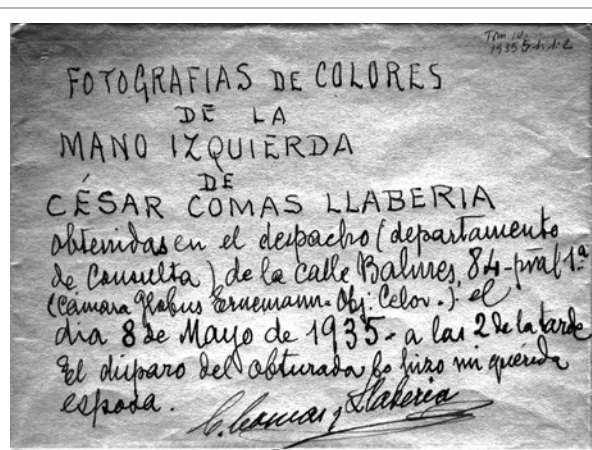 Tom IV.
1935
FOTOGRAFIAS DE COLORES
DE LA
MANO IZQUIERDA
DE
CÉSAR COMAS LLABERIA
obtenidas en el despacho (departamento
de Consulta) de la calle Balmes, 84-pral 1ª
(Cámara Globus Ernemann-Obj: Celor.): el
dia 8 de Mayo de 1935- a las 2 de la tarde
El disparo del obturado lo hizo mi querida
esposa.
C. Comas y Llaberia